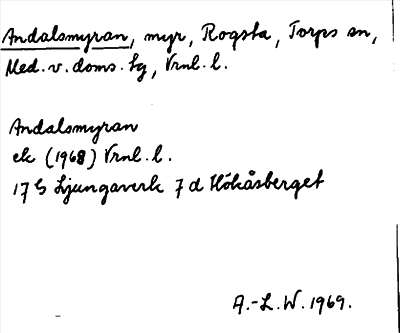 Andalsmyran, myr, Rogsta, Torps sn,
Med. v. doms. tg, Vrnl. l.
Andalsmyran
ek (1968) Vrnl. l.
17 G Ljungaverk 7 d Hökåsberget
A.-L. W. 1969.